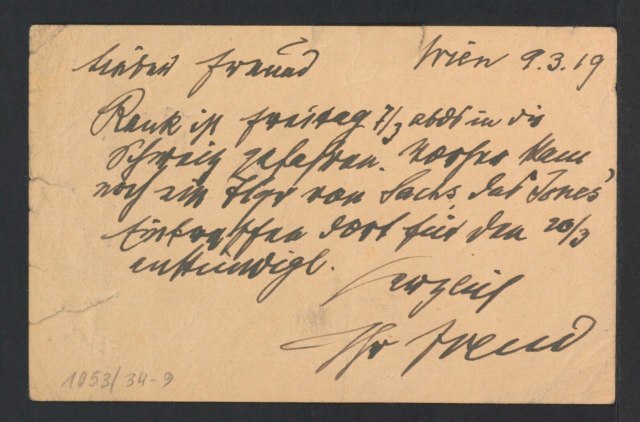 Lieber Freund Wien 9.3.19
Rank ist Freitag 7/3 abds in die
Schweiz gefahren. Vorher kam
noch ein Tlgr von Sachs, das Jones'
Eintreffen dort für den 20/3
ankündigt.
Herzlich
Ihr Freud
1053/34-9